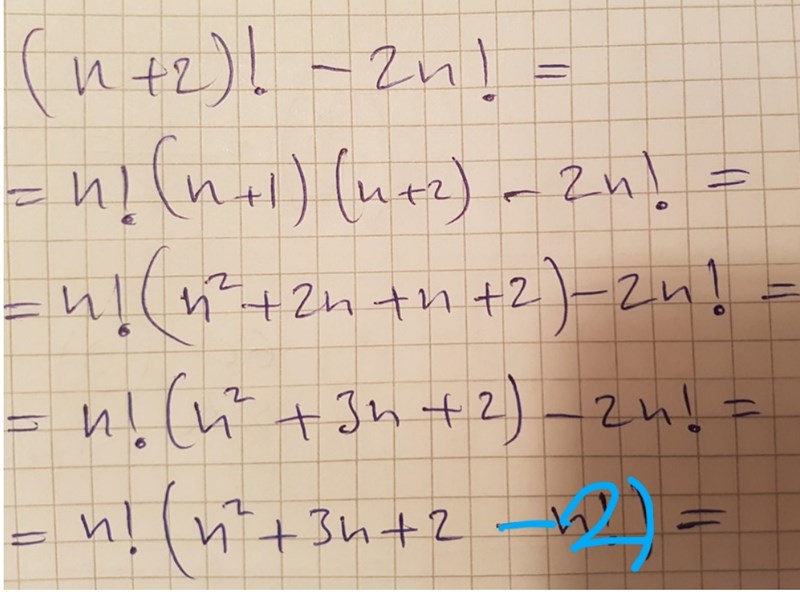 (n+2)! - 2n! =
= n!(n+1)(n+2) - 2n! =
= n!(n²+2n+n+2)-2n! =
= n!(n²+3n+2)-2n! =
= n!(n²+3n+2 -2) =